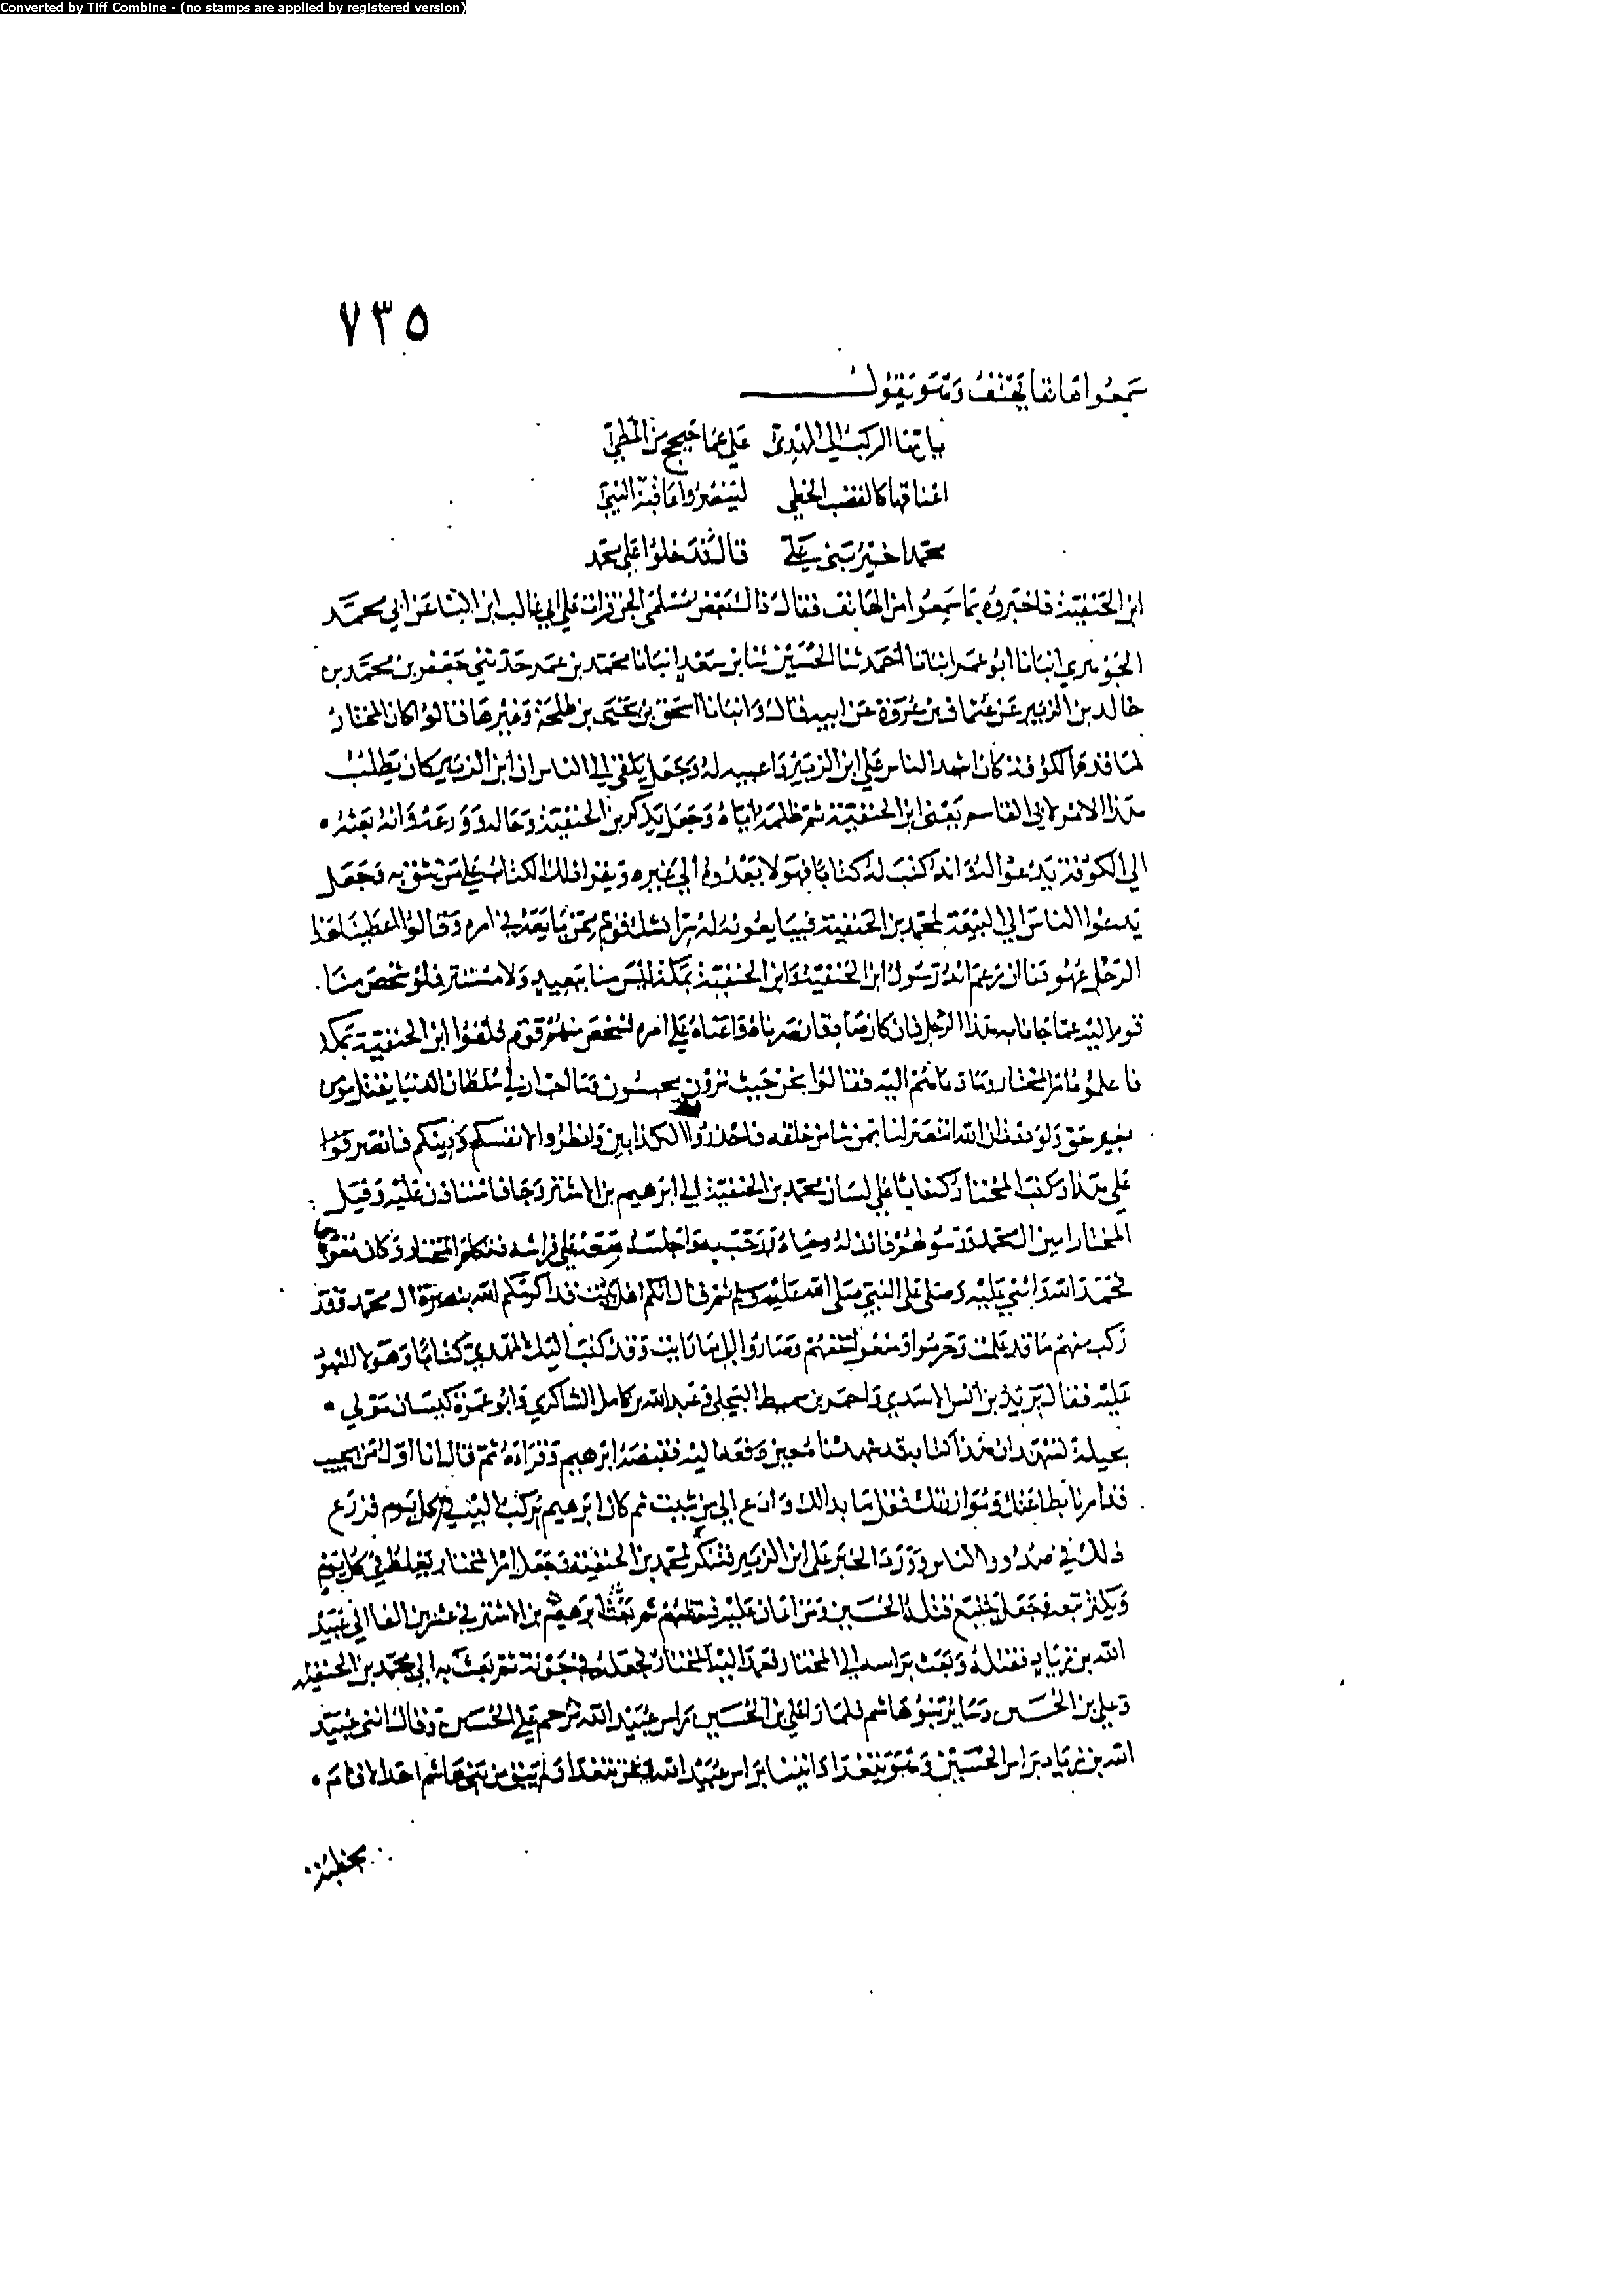 Converted by Tiff Combine - (no stamps are applied by registered version)
٧٣٥
سمعوا هاتفا يهتف وهو يقول
يا ايها الركب الي المهدي علي عناجيج من المطي
اعناقها كالقضب الخطي لينصروا عاقبة النبي
محمدا خير بني علي قال فدخلوا علي محمد
ابن الحنفية فاخبروه بما سمعوا من الهاتف فقال ذاك بعض مسلمي الجن قرات علي ابي غالب ابن البنا عن ابي محمد
الجوهري انبانا ابو عمر انبانا احمد ثنا الحسين ثنا بن سعد انبانا محمد بن عمر حدثني جعفر بن محمد بن
خالد بن الزبير عن عثمان بن عروة عن ابيه قال وانبانا اسحق بن يحيى بن طلحة وغيرها قالوا كان المختار
لما قدم الكوفة كان اشد الناس علي ابن الزبير واعيبه له وجعل يلقي الي الناس ان ابن الزبير كان يطلب
هذا الامر لابي القاسم يعني ابن الحنفية ثم ظلمه اياه وجعل يذكر بن الحنفية وحاله وورعه وانه بعثه
الي الكوفة يدعوا له وانه كتب له كتابا فهو لا يعدوه الي غيره ويقرا ذلك الكتاب علي من يثق به وجعل
يدعوا الناس الي البيعة لمحمد بن الحنفية فيبايعونه له سرا فشك قوم ممن بايعه في امره وقالوا اعطينا هذا
الرجل عهودنا ان زعم انه رسول ابن الحنفية وابن الحنفية بمكة ليس منا ببعيد ولا مستتر فلو شخص منا
قوم اليه عما جانا به هذا الرجل فان كان صادقا نصرناه واعناه علي امره فشخص منهم قوم فلقوا ابن الحنفية بمكة
فاعلموه امر المختار وما دعاهم اليه فقال نحن حيث ترون محتسبون وما احب ان لي سلطان الدنيا بقتل مومن
بغير حق ولوددت ان الله انتصر لنا بمن شا من خلقه فاحذروا الكذابين وانظروا لانفسكم ودينكم فانصرفوا
علي هذا وكتب المختار كتابا علي لسان محمد بن الحنفية الي ابرهيم بن الاشتر وجا فاستاذن عليه وقيل
المختار امين ال محمد ورسولهم فاذن له وحياه ورحب به واجلسه معه علي فراشه فتكلم المختار وكان مفوها
فحمد الله واثني عليه وصلى على النبي صلى الله عليه وسلم ثم قال انكم اهل بيت قد اكرمكم الله بنصرة ال محمد وقد
ركب منهم ما قد علمت وحرموا ومنعوا حقهم وصاروا الي ما رايت وقد كتب اليك المهدي كتابا وهولا الشهود
عليه فقال يزيد بن انس الاسدي واحمر بن سميط البجلي وعبد الله بن كامل الشاكري وابو عمرة كيسان مولي
بجيلة نشهد ان هذا كتابه قد شهدنا حين دفعه اليه فقبضه ابرهيم وقراه ثم قال انا اول من يجيب
قد امرنا بطاعتك وموازرتك فقل ما بدا لك وادع الي من شيت ثم كان ابرهيم يركب اليه في كل يوم فزرع
ذلك في صدور الناس وورد الخبر على ابن الزبير فتنكر لمحمد بن الحنفية وجعل امر المختار يغلظ في كل يوم
ويكثر تبعه وجعل يتتبع قتلة الحسين ومن اعان عليه فيقتلهم ثم بعث ابرهيم بن الاشتر في عشرين الفا الي عبيد
الله بن زياد فقتله وبعث براسه الي المختار فعمد اليه المختار فجعله في جونة ثم بعث به الي محمد بن الحنفية
وعلي بن الحسين وساير بني هاشم فلما راى علي بن الحسين راس عبيد الله ترحم علي الحسين وقال اتى عبيد
الله بن زياد براس الحسين وهو يتغدا واتينا براس عبيد الله ونحن نتغدا ولم يبق من بني هاشم احد الا قام
بخطبة